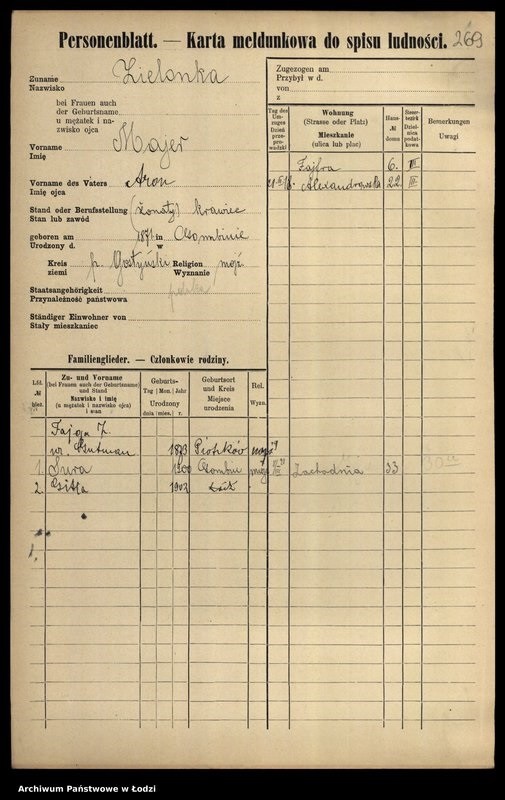 Personenblatt. — Karta meldunkowa do spisu ludności. 269
Zuname Zielonka
Nazwisko
bei Frauen auch
der Geburtsname
u mężatek i na-
zwisko ojca
Vorname Majer
Imię
Vorname des Vaters Aron
Imię ojca
Stand oder Berufsstellung (żonaty) krawiec
Stan lub zawód
geboren am 1871 in Gombinie
Urodzony d. w
Kreis p. Gostyński Religion mojż
ziemi Wyznanie
Staatsangehörigkeit polska
Przynależność państwowa
Ständiger Einwohner von
Stały mieszkaniec
Zugezogen am
Przybył w d.
von
z
Tag des Um-zuges Dzień prze-prowadzki
Wohnung
(Strasse oder Platz)
Mieszkanie
(ulica lub plac)
Haus-
№
domu
Steuer-bezirk Dziel-nica podat-kowa
Bemerkungen
Uwagi
Fajfra 6. III
Alexandrowska 22.
Zachodnia 33
Familienglieder. — Członkowie rodziny.
Lfd.
№
bież.
Zu- und Vorname
(bei Frauen auch der Geburtsname)
und Stand
Nazwisko i imię
(u mężatek i nazwisko ojca)
i stan
Geburts-
Tag | Mon. | Jahr
Urodzony
dnia | mies. | r.
Geburtsort
und Kreis
Miejsce
urodzenia
Rel.
Wyzn.
Fajga Z.
ur. Gutman 1873 Piotrków mojż
1. Sura 1900 Gombin mojż
2. Gitla 1903 Łódź
Archiwum Państwowe w Łodzi